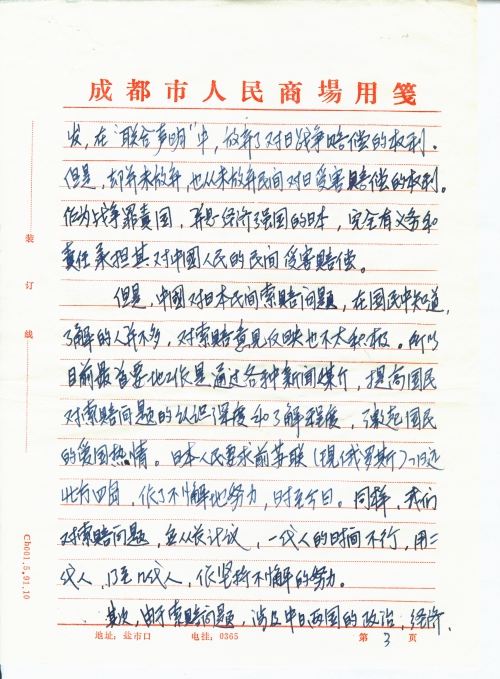 成都市人民商場用笺
发,在“联合声明”中,放弃了对日战争赔偿的权利。
但是,却并未放弃,也从未放弃民间对日受害赔偿的权利。
作为战争罪责国,并是经济强国的日本,完全有义务和
责任承担其对中國人民的民间受害赔偿。
但是,中國对日本民间索赔问题,在国民中知道,
了解的人并不多,对索赔意见反映也不太积极。所以
目前最首要地工作是通过各种新闻媒介,提高国民
对索赔问题的认识深度和了解程度,激起国民
的爱国热情。日本人民要求前苏联(现俄罗斯)归还
北方四岛,作了不懈地努力,时至今日。同样,我们
对索赔问题,应从长计议,一代人的时间不行,用二
代人,乃至几代人,作坚持不懈的努力。
其次,由于索赔问题,涉及中日两国的政治,经济,
地址:盐市口 电挂:0365 第3页
装订线
Cb001.5,91.10